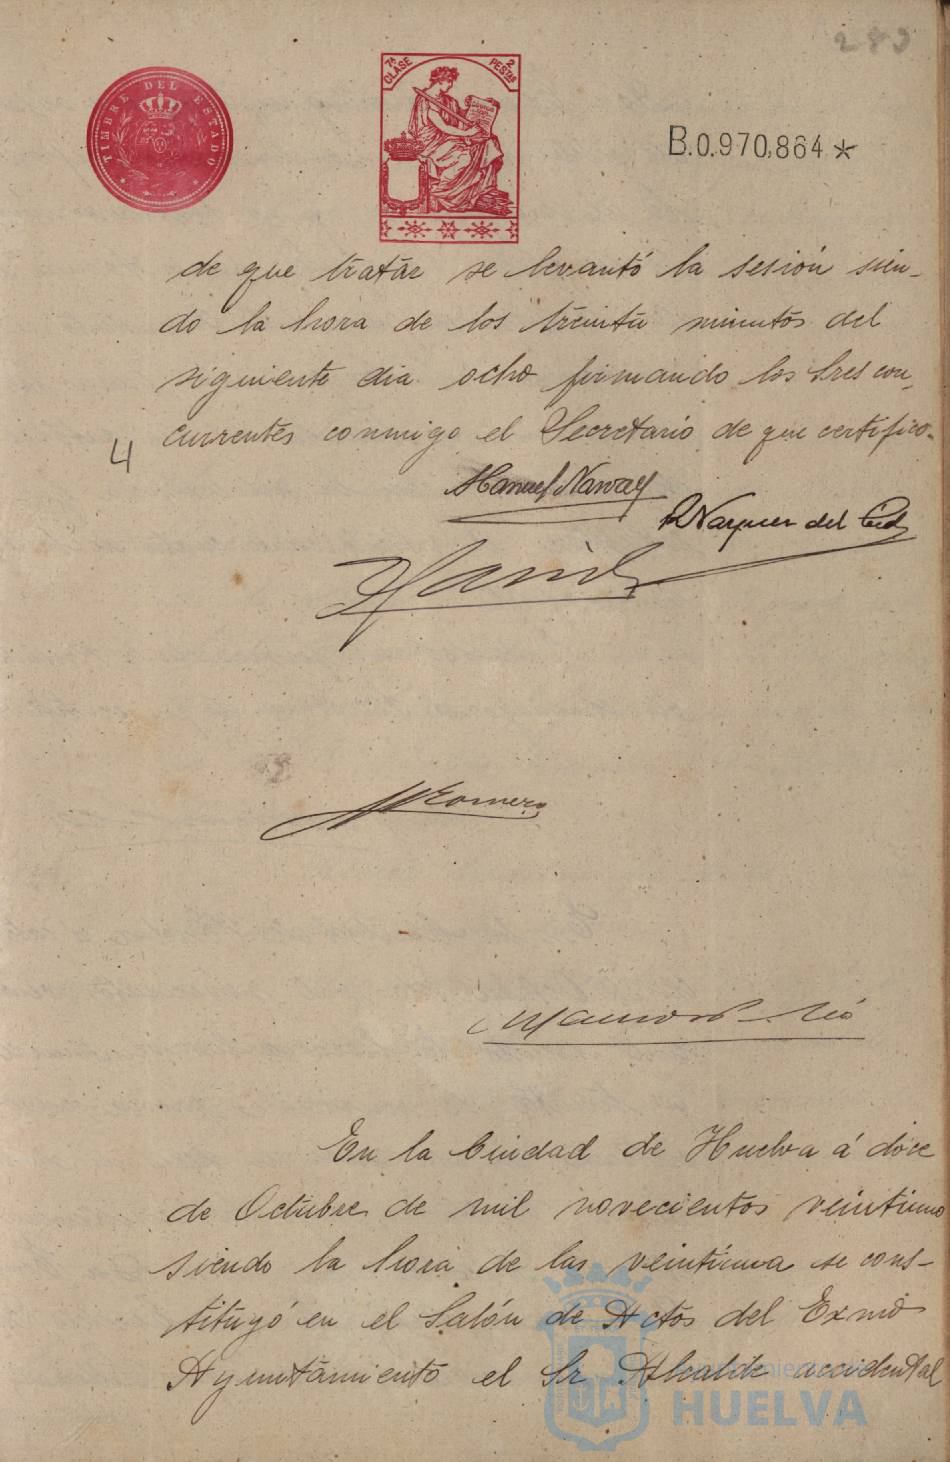 280
TIMBRE DEL ESTADO
7ª CLASE
2 PESTAS
B.0.970,864 *
de que tratar se levantó la sesión sien-
do la hora de los treinta minutos del
siguiente dia ocho firmando los Sres con-
currentes conmigo el Secretario de que certifico.
4
Manuel Narvaez
Vazquez del Cid
Romero
En la Ciudad de Huelva á doce
de Octubre de mil novecientos veintiuno
siendo la hora de las veintiuna se cons-
tituyó en el Salón de Actos del Exmo
Ayuntamiento el Sr Alcalde accidental
HUELVA